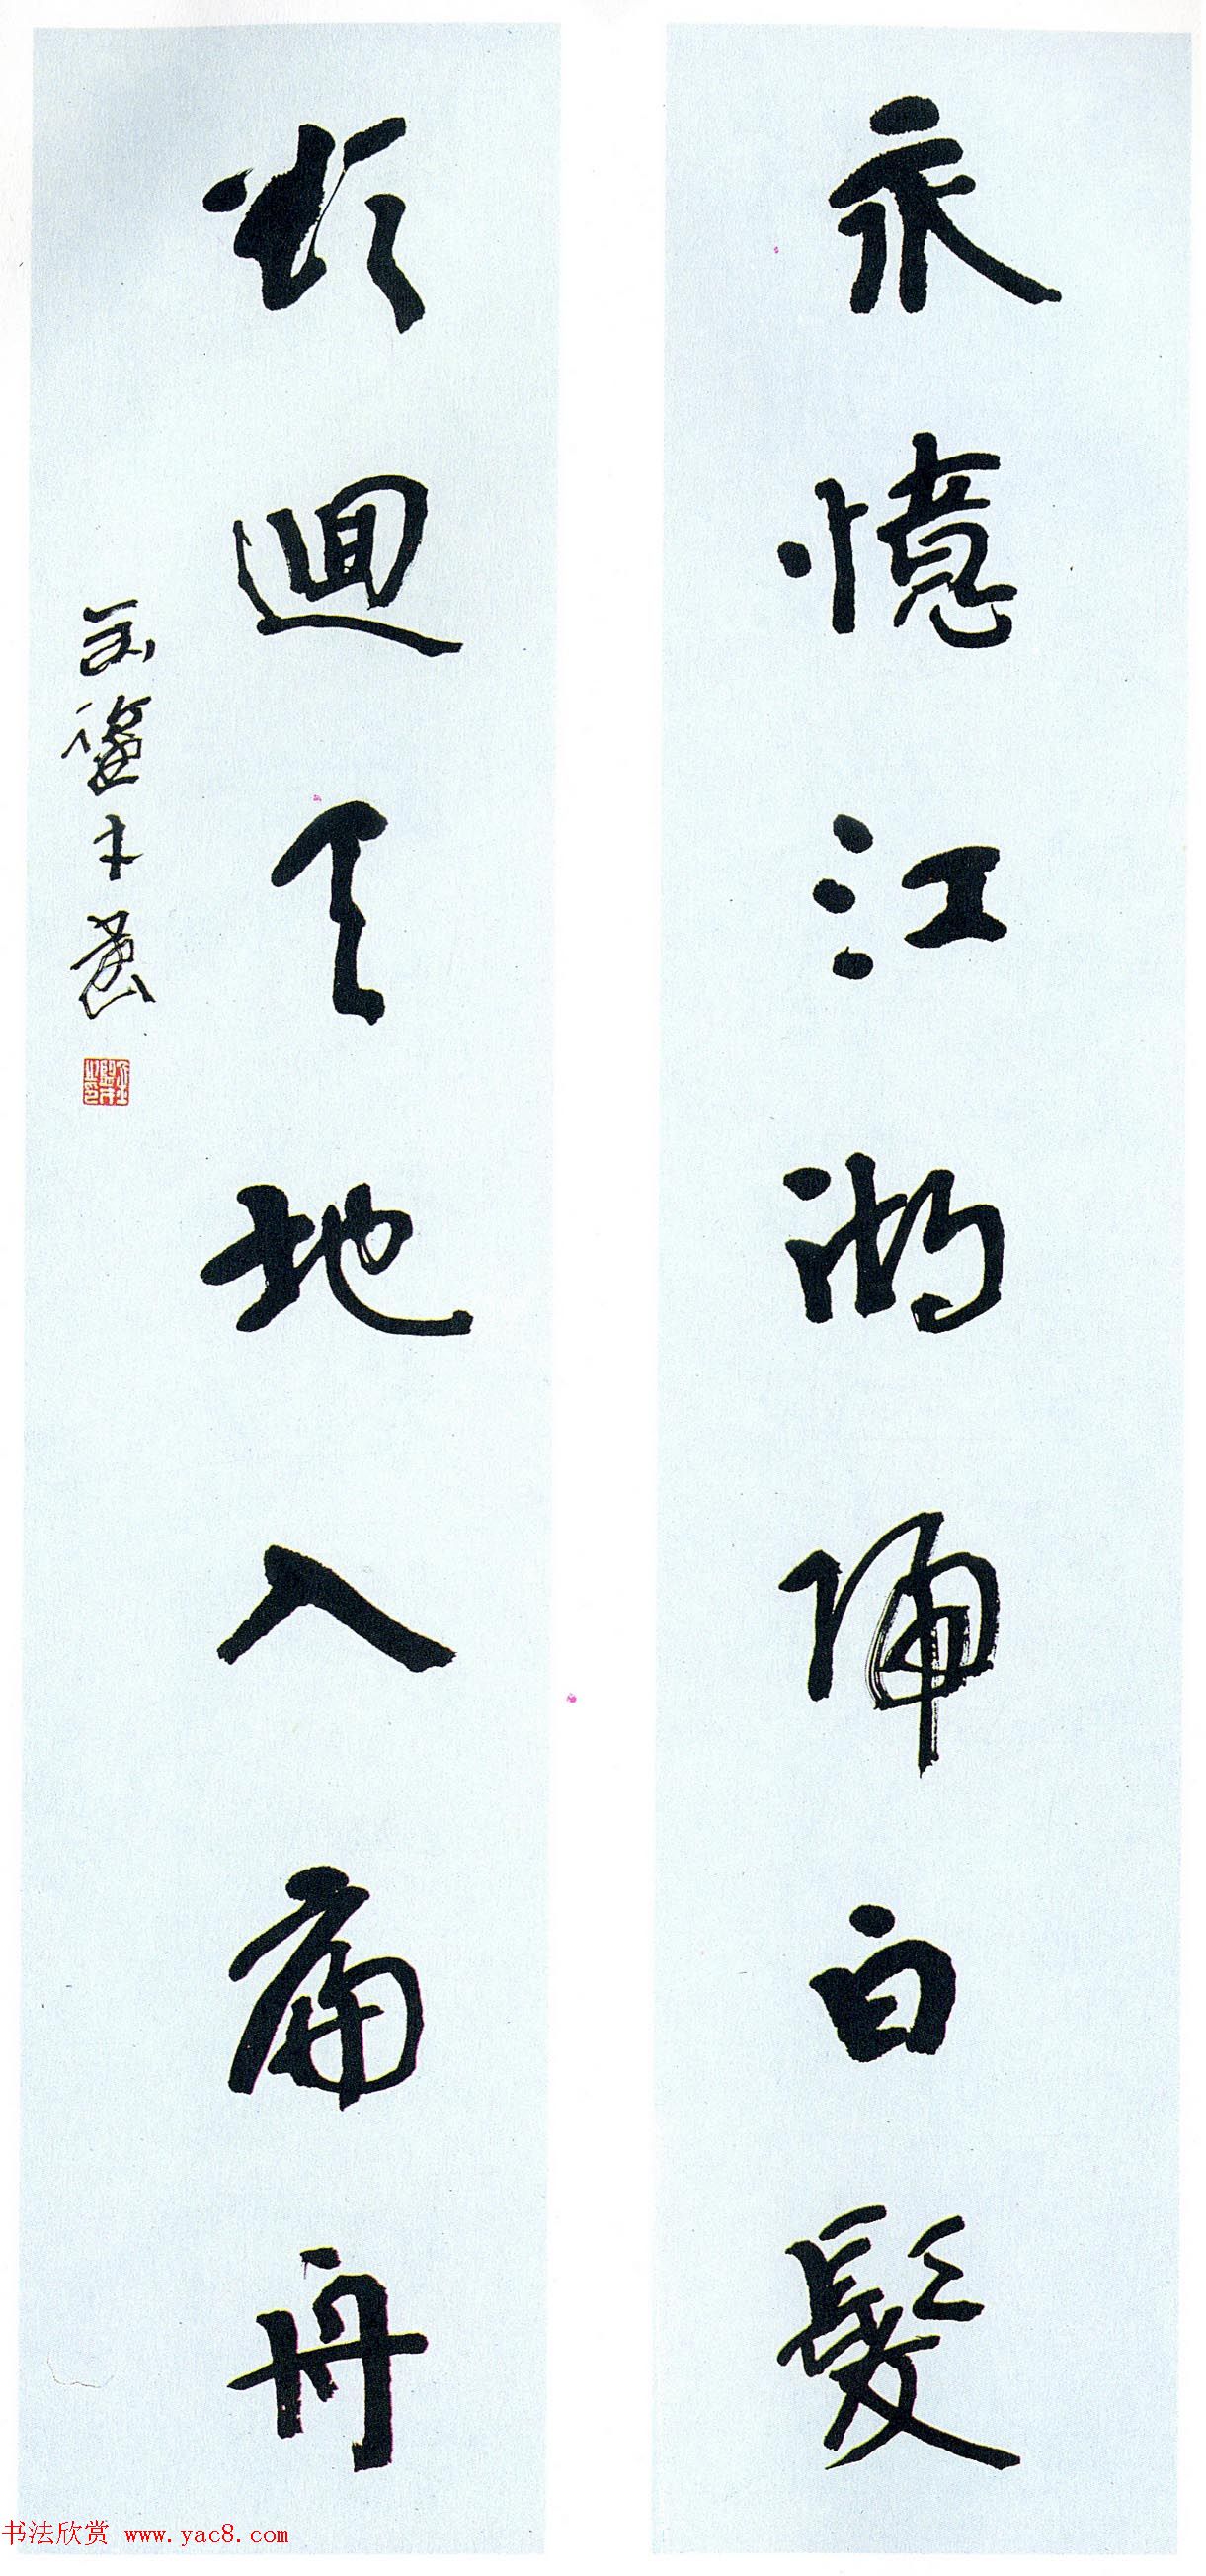 永憶江湖歸白髮
欲迴天地入扁舟
书法欣赏 www.yac8.com